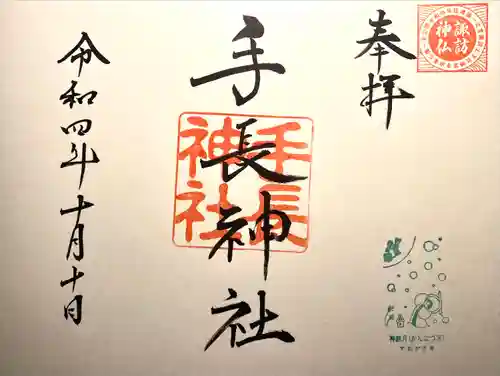 奉拝
諏訪
神仏
手長神社
手長
神社
令和四年十月十日
神無月(かんなづき)